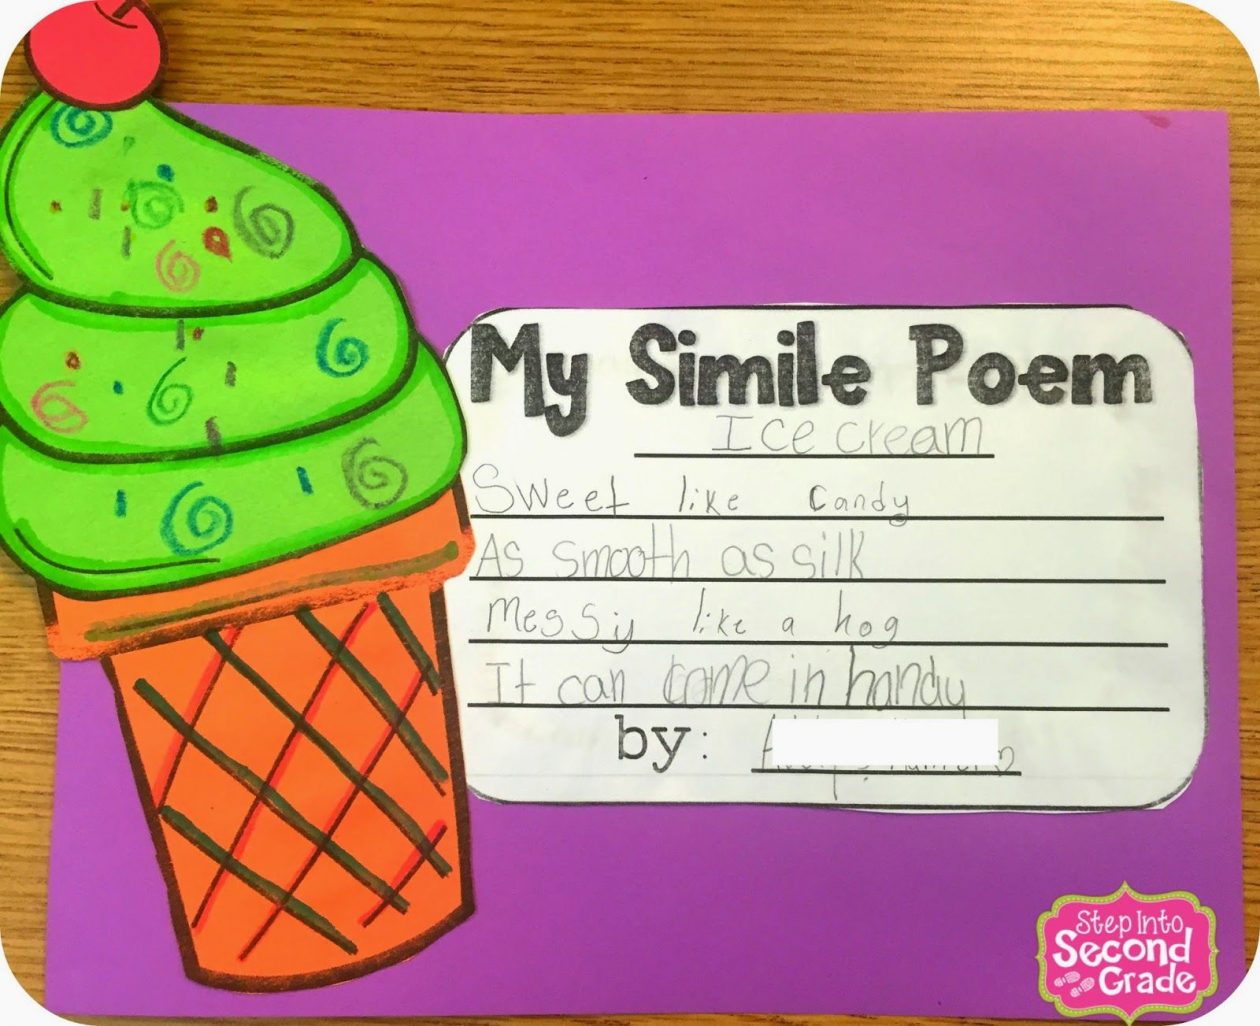 My Simile Poem
Ice cream
Sweet like candy
As smooth as silk
Messy like a hog
It can come in handy
by:
Step Into
Second
Grade